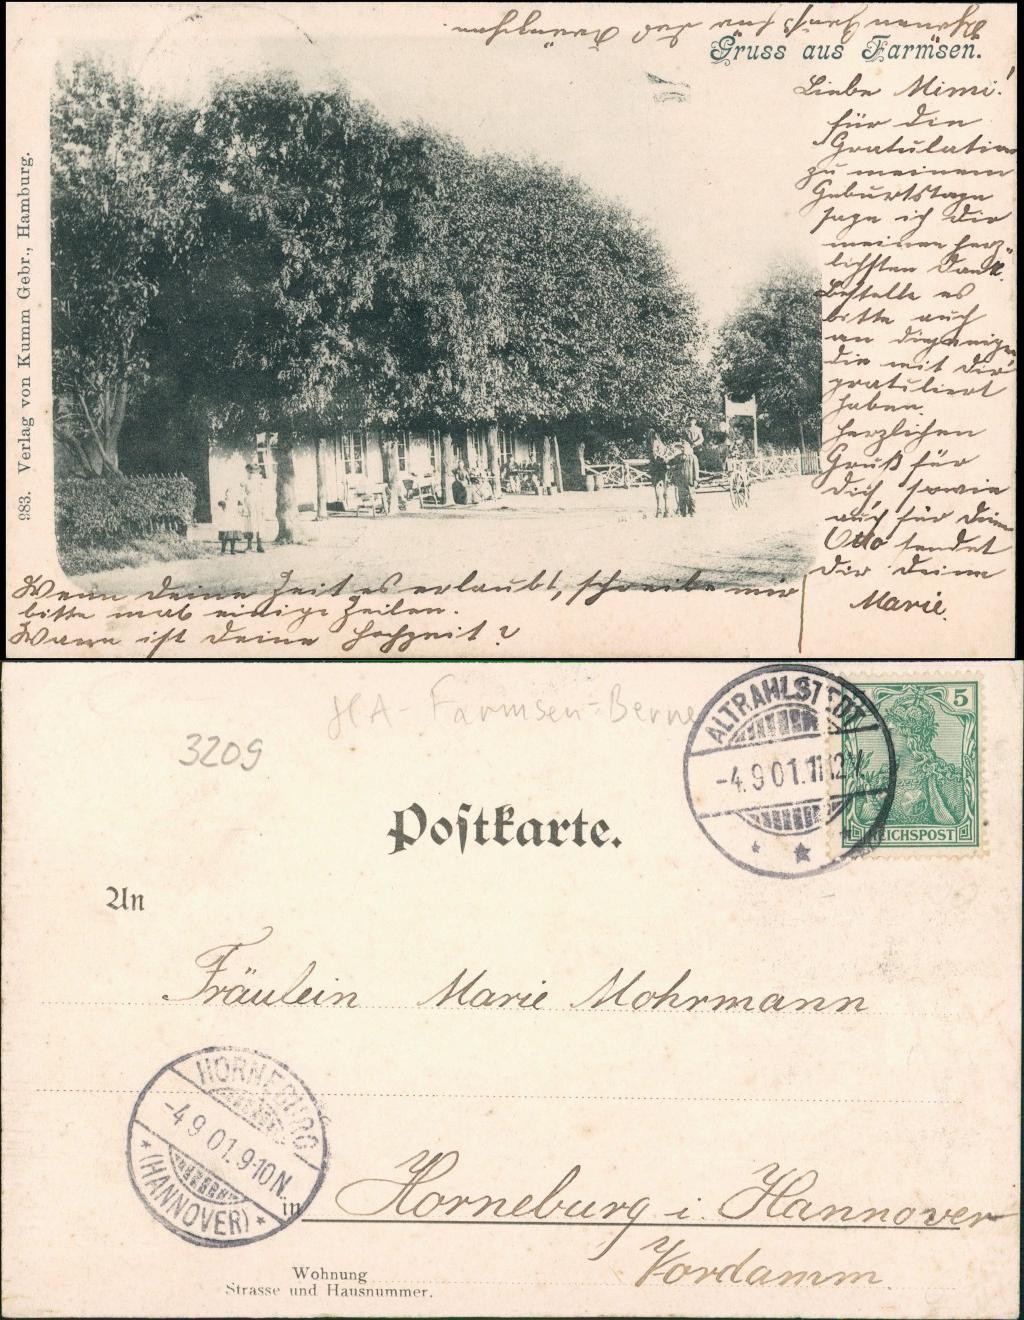 Gruss aus Farmsen.
Liebe Mimi!
für die
Gratulation
zu meinem
Geburtstage
sage ich Dir
meinen herz-
lichsten Dank.
Bestelle es
bitte auch
an diejenigen
die mit Dir
gratuliert
haben.
Herzlichen
Gruß für
Dich, sowie
auch für Dein
Otto sendet
Dir Deine
Marie.
Wenn Deine Zeit es erlaubt, schreibe mir
bitte mal einige Zeilen.
Wann ist Deine Hochzeit?
983. Verlag von Kumm Gebr., Hamburg.
HA - Farmsen-Berne
3209
ALTRAHLSTEDT
-4.9.01.11-12V.
5
REICHSPOST
Postkarte.
An
Fräulein Marie Mohrmann
HORNEBURG
-4.9.01.9-10N.
(HANNOVER)
in Horneburg i. Hannover
Vordamm.
Wohnung
Strasse und Hausnummer.